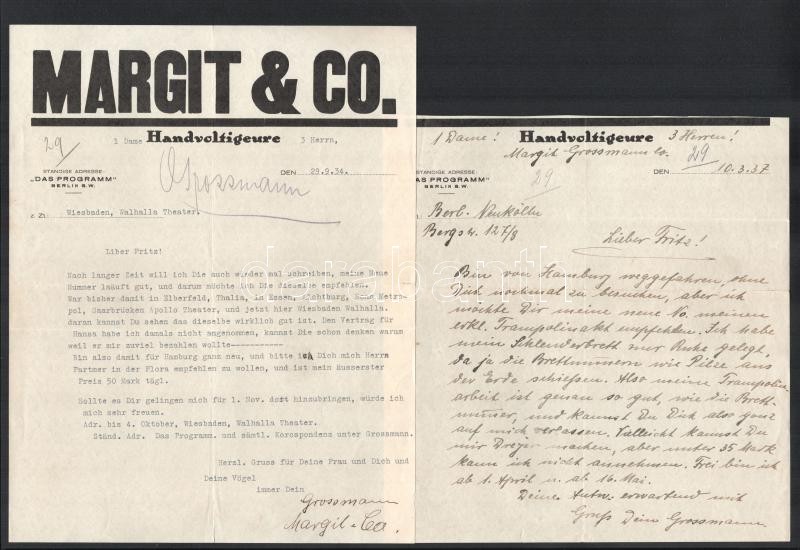 MARGIT & CO.
29
1 Dame Handvoltigeure 3 Herrn,
Grossmann
STÄNDIGE ADRESSE:
„DAS PROGRAMM"
BERLIN S.W.
DEN 29.9.34.
z. Zt. Wiesbaden, Walhalla Theater.
Liber Fritz!
Nach langer Zeit will ich Die auch wieder mal schreiben, meine Neue
Nummer läuft gut, und darum möchte ich Die dieselbe empfehlen.
War bisher damit in Elberfeld, Thalia, in Essen,
Saarbrücken Apollo Theater, und jetzt hier Wiesbaden Walhalla.
daran kannst Du sehen das dieselbe wirklich gut ist. Den Vertrag für
Hansa habe ich damals nicht angenommen, kannst Die schon denken warum
weil er mir zuviel bezahlen wollte----------
Bin also damit für Hamburg ganz neu, und bitte ich Dich mich Herrn
Partner in der Flora empfehlen zu wollen, und ist mein Äusserster
Preis 50 Mark tägl.
Sollte es Dir gelingen mich für 1. Nov. dort hinzubringen, würde ich
mich sehr freuen.
Adr. bis 4. Oktober, Wiesbaden, Walhalla Theater.
Ständ. Adr. Das Programm. und sämtl. Korespondenz unter Grossmann.
Herzl. Gruss für Deine Frau und Dich und
Deine Vögel
immer Dein
Grossmann
Margit - Co.
1 Dame! Handvoltigeure 3 Herren!
Margit-Grossmann Co.
29
29
STÄNDIGE ADRESSE:
DAS PROGRAMM"
BERLIN S.W.
DEN 10.3.37.
Berl. Neukölln
Bergstr. 127/8
Lieber Fritz!
Bin von Hamburg weggefahren, ohne
Dich nochmal zu besuchen, aber ich
möchte Dir meine neue No. meinen
erkl. Trampolinakt empfehlen. Ich habe
mein Schleuderbrett zur Ruhe gelegt,
da ja die Brettnummern wie Pilze aus
der Erde schießen. Also meine Trampolin-
arbeit ist genau so gut, wie die Brett-
nummer, und kannst Du Dich also ganz
auf mich verlassen. Vielleicht kannst Du
mir Dreyer machen, aber unter 35 Mark
kann ich nicht annehmen. Frei bin ich
ab 1. April u. ab 16. Mai.
Deine Antw. erwartend mit
Gruß Dein Grossmann
darabanth